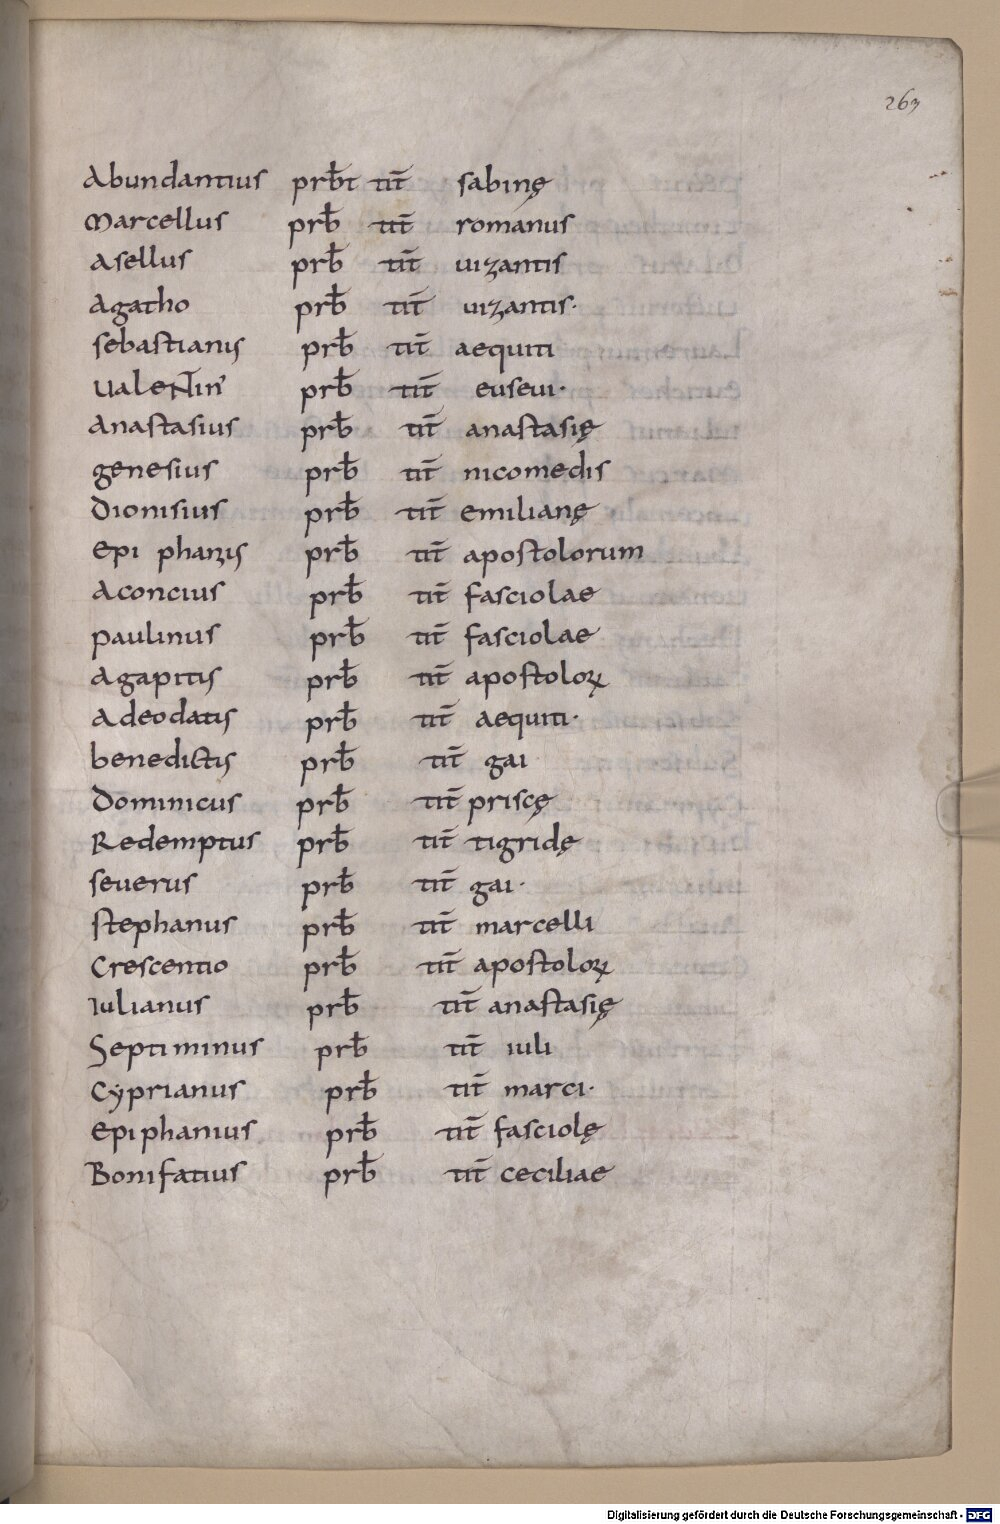 263
Abundantius prb̄t tit̄ sabinę
Marcellus prb̄ tit̄ romanus
Asellus prb̄ tit̄ uizantis
Agatho prb̄ tit̄ uizantis·
sebastianis prb̄ tit̄ aequiti
Ualentin' prb̄ tit̄ eusevi·
Anastasius prb̄ tit̄ anastasię
genesius prb̄ tit̄ nicomedis
Dionisius prb̄ tit̄ emilianę
Epi phanis prb̄ tit̄ apostolorum
Aconcius prb̄ tit̄ fasciolae
paulinus prb̄ tit̄ fasciolae
Agapitis prb̄ tit̄ apostoloꝝ
Adeodatis prb̄ tit̄ aequiti·
benedictis prb̄ tit̄ gai
Dominicus prb̄ tit̄ priscę
Redemptus prb̄ tit̄ tigridę
seuerus prb̄ tit̄ gai·
stephanus prb̄ tit̄ marcelli
Crescentio prb̄ tit̄ apostoloꝝ
Iulianus prb̄ tit̄ anastasię
Septiminus prb̄ tit̄ iuli
Cyprianus prb̄ tit̄ marci·
Epiphanius prb̄ tit̄ fasciolę
Bonifatius prb̄ tit̄ ceciliae
Digitalisierung gefördert durch die Deutsche Forschungsgemeinschaft - DFG